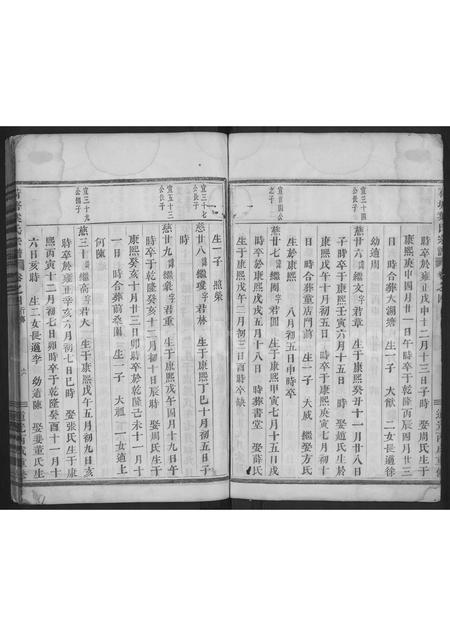 時卒於雍正戊申十二月十三日子時 娶周氏生于
康熙庚申四月廿一日午時卒于乾隆丙辰四月廿三
日 時合葬大湖塘 生一子 大猷 二女長適徐
幼適周
宣三十四
公長子
慈廿六 諱繼文 字君章 生于康熙癸丑十一月廿八日
子時卒于康熙壬寅六月十五日 時 娶趙氏生於
康熙戊午十月初五日 時卒于康熙庚子七月初十
日 時合葬童店門前 生一子 大威 繼娶方氏
生於康熙 八月初五日申時卒
宣百四公
之子
慈廿七 諱繼周 字君圓 生于康熙甲寅七月十五日戌
時卒於康熙戊戌五月十八日 時葬書堂 娶薛氏
生于康熙戊午三月初三日酉時卒缺
生一子 懋榮
宣三十七
公長子
慈廿八 諱繼瓊 字君林 生于康熙丁巳十月初五日子
時
宣五十三
公長子
慈廿九 諱繼泉 字君重 生于康熙戊午四月十九日午
時卒于乾隆癸亥十二月初十日辰時 娶周氏生于
康熙癸亥十月廿三日卯時卒於乾隆己未十一月十
一日 時合葬前桑園 生一子 大龍 一女適上
何陳
宣三十九
公繼子
慈三十 諱繼高 字君大 生于康熙戊午五月初九日亥
時卒於雍正辛亥六月初七日巳時 娶張氏生于康
熙丙寅十二月初七日卯時卒于乾隆癸酉十一月十
六日亥時 生二女長適李 幼適陳 娶妻董氏生